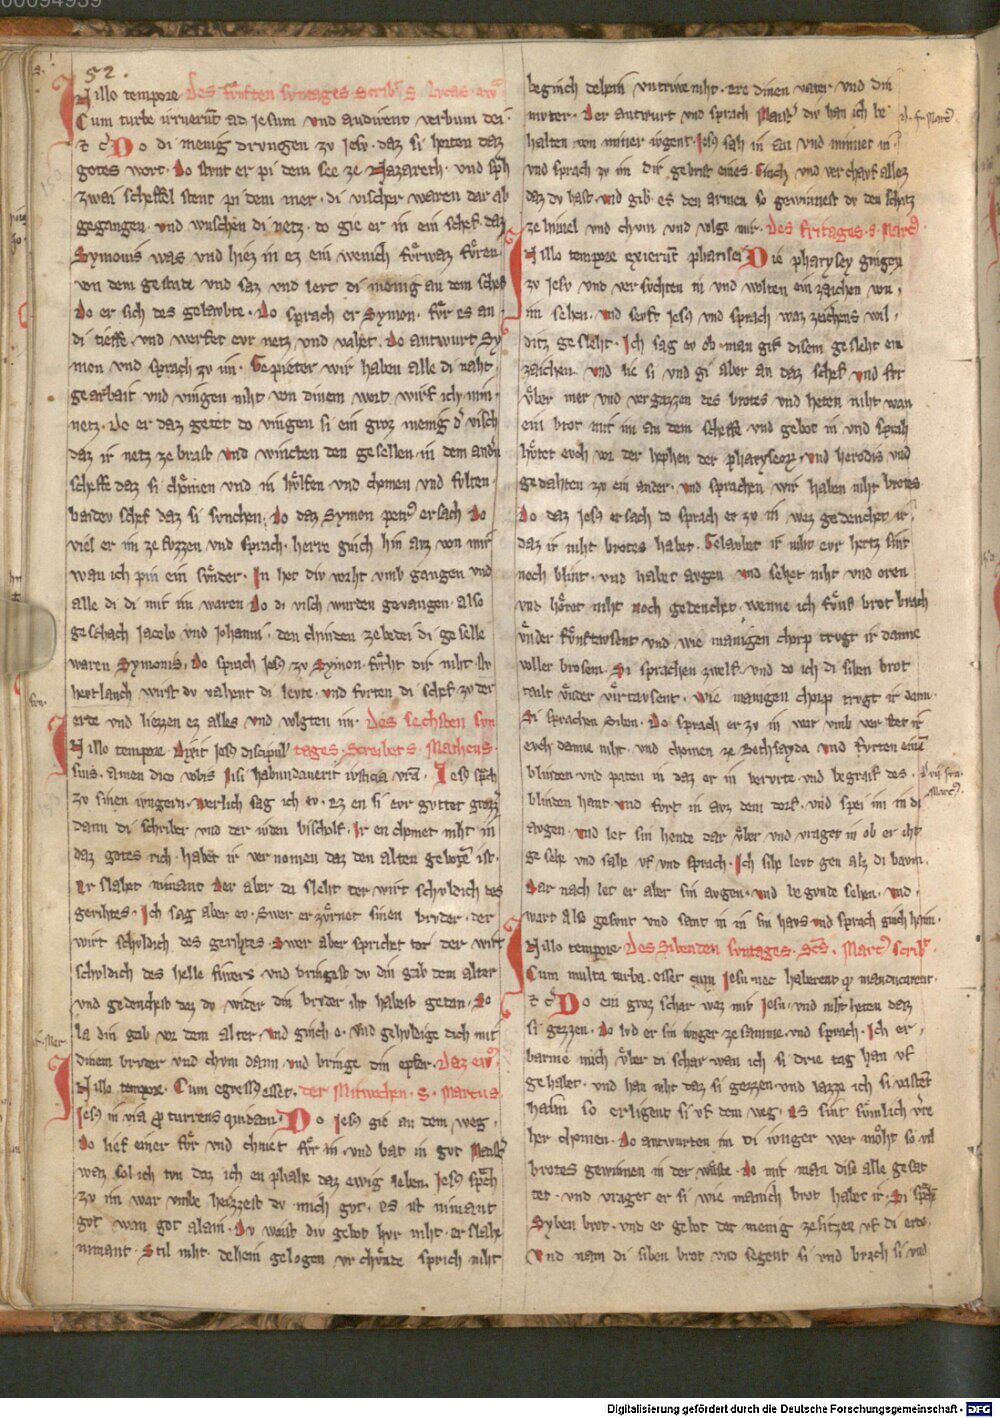 00094939
52.
Illo tempore Des fvnften svntages scrib' S lvcas ew'
Cum turbe irruerūt ad Jesum vnd audirent verbum dei ·
Do di menig drvngen zv Jesv · daz si horten daz
gotes wort · Do stvnt er pi dem see ze Nazareth · vnd sprch
zwai scheffel stent pi dem mer · di vischer waren dar ab
gegangen · vnd wuschen di netz · do gie er in ein schef · daz
Symonis was vnd hiez in ez ein wenich fvrwaz fvren
von dem gestade vnd saz vnd lert di menig auz dem schef
Do er sich des gelaubte · Do sprach er Symon · fvr es an
di tieffe · vnd werfet evr netz vnd vahet · Do antwurt Sy
mon vnd sprach zv im · Gepieter wir haben alle di naht
gearbait vnd vingen niht von dinem wort wirf ich min
netz · Do er daz getet do vingen si ein groz menig d' visch
daz ir netz zebrast vnd wincten den gesellen in dem andn
scheffe daz si chomen vnd in hvlfen vnd chomen vnd fvlten
baidev schef daz si svnchen · Do daz Symon petr' ersach do
viel er im ze fvzzen vnd sprach · herre ganch hin auz von mir
wan ich pin ein svnder · In het div vorht vmb gangen vnd
alle di di mit im waren Do di visch wurden gevangen · also
geschach Jacobo vnd Johanni · den chinden zebedei di geselle
waren Symonis · Do sprach Jesus zv Symon · fvrht dir niht ·
wirst dv vahent di levte · vnd fvrten di schef zv der
erde vnd liezzen ez alles vnd volgten im · Des sechsten svn
Illo tempore · Dixit Jesus discipul' tages · Screibet S · Matheus ·
suis · amen dico vobis nisi habundauerit iusticia vrā · Jesus sprch
zv sinen ivngern · werlich sag ich ev · ez en si evr gvttet grozz'
dann di schriber vnd der ivden bischolf · Ir en chomet niht in
daz gotes rich · habet ir vernomen daz den alten geboten ist ·
Er slahet nimant Der aber da sleht der wirt schvldich des
gerihtes · Ich sag aber ev · Swer er zvrnet sinen brvder · der
wirt schvldich des gerihtes · Swer aber sprichet tor der wirt
schvldich des helle fivers vnd bringest dv din gab dem alter
vnd gedenchest daz dv wider din brvder iht habest getan · So
la din gab vor dem alter · vnd ginch e · vnd gehvldige dich mit
dinem brvder vnd chvm dann vnd bringe din opfer · Daz ew'
Illo tempore · Cum egressus esset · der Mitwochen · S · Marcus
Jesus in via procurrens quidam · Do Jesus gie an dem weg ·
Do lief einer fvr vnd chniet fvr in · vnd bat in gvt Maist'
waz sol ich tvn daz ich en phahe daz ewig leben · Jesus sprch
zv im war vmbe heizzest dv mich gvt · es ist nimant
gvt wan got alain · Dv weist div gebot hvr niht · er slahe
nimant · Stil niht · dehein gelogen vrchvnde sprich niht
beginch dehein vntriwe niht · ere dinen vater · vnd din
mvter · Der antwurt vnd sprach Maist' div han ich be
halten von miner ivgent · Jesus sah in an vnd minnet in
vnd sprach zv im dir gebrist eines · Ginch vnd verchauf allez
daz dv hast · vnd gib es den armen so gewinnest dv den schatz
ze himel vnd chvm vnd volge mir · Des fritages · S · Marc'
Illo tempore exierūt pharisei Die pharysey gingen
zv Jesv vnd versvchten in vnd wolten ein zaichen von
im sehen · vnd sevft Jesus vnd sprach waz zeichens wil
ditz gesleht · Ich sag ev ob man gib disem gesleht ein
zaichen · vnd lie si vnd gi aber an daz schef vnd fvr
vber mer vnd vergazzen des brotes vnd heten niht wan
ein brot mit im an dem scheffe vnd gebot in vnd sprah
hvtet evch vor der hephen der pharyseorum · vnd herodis vnd
gedahten zv ein ander · vnd sprachen wir haben niht brotes ·
Do daz Jesus ersach do sprach er zv in wez gedenchet ir
daz ir niht brotes habet · Gelaubet ir niht evr hertz sint
noch blint · vnd habet augen vnd sehet niht vnd oren
vnd horet niht noch gedenchet · wenne ich fvnf brot brach
vnder fvnftausent vnd wie manigen chorp trvgt ir danne
voller brosem · Si sprachen zwelf · vnd do ich di siben brot
tailt vnder virtausent · wie manigen chorp trvgt ir dann ·
Si sprachen siben · Do sprach er zv in war vmb verstet ir
evch danne niht · vnd chomen ze Bethsayda vnd fvrten einē
blinden vnd paten in daz er in rvrte · vnd begraif des
blinden hant · vnd fvrt in auz dem dorf · vnd spei im in di
augen · vnd let sin hende dar vber vnd vraget in ob er iht
gesehe vnd sahe vf vnd sprach · Ich sihe levt gen alz di bavm ·
Dar nach let er aber sin augen · vnd begvnde sehen · vnd
wart also gesvnt vnd sant in in sin havs vnd sprach ginch haim ·
Illo tempore · Des Sibenden svntages · Scs · Marc' scrib' ·
Cum multa turba · esset cum Jesu · nec haberent quod manducarent ·
Do ein groz schar waz mit Jesu · vnd niht heten daz
si gezzen · Do lvd er sin ivnger zesamme · vnd sprach · Ich er
barme mich vber di schar wan ich si drie tag han vf
gehabet · vnd han niht daz si gezzen · vnd lazze ich si vastent
haim so erligent si vf dem weg · es sint svmlich verre
her chomen · Do antwurten im di ivnger wer moht so vil
brotes gewinnen in der wuste · Do mit man dise alle gesat
tet · vnd vraget er si wie manich brot habet ir · Si sprch
Syben brot · vnd er gebot der menig ze sitzen vf di erde ·
Vnd nam di siben brot vnd segent si vnd brach si vnd
Digitalisierung gefördert durch die Deutsche Forschungsgemeinschaft - DFG